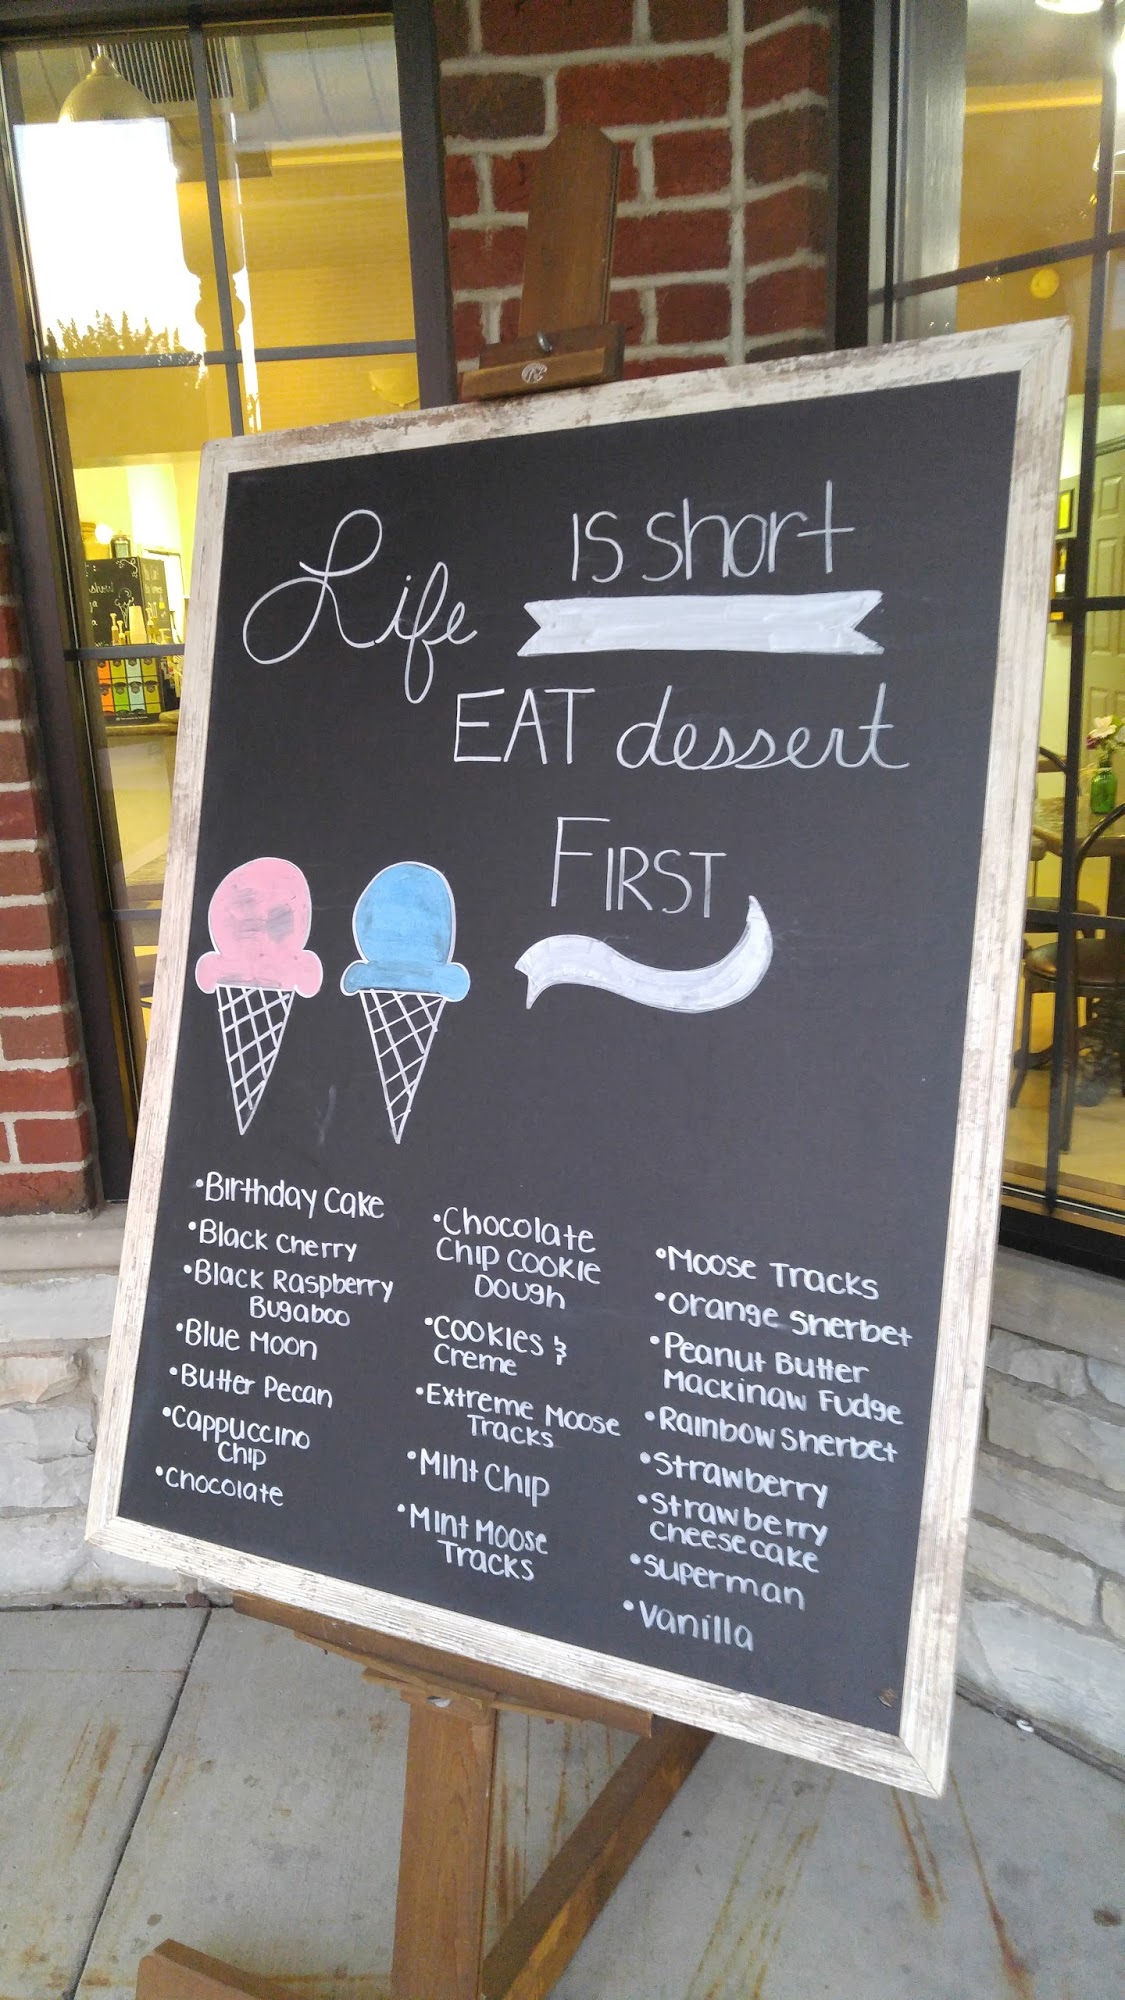 Life
is short
EAT dessert
FIRST
•Birthday Cake
•Black Cherry
•Black Raspberry
Bugaboo
•Blue Moon
•Butter Pecan
•Cappuccino
Chip
•Chocolate
•Chocolate
Chip Cookie
Dough
•Cookies &
Creme
•Extreme Moose
Tracks
•Mint Chip
•Mint Moose
Tracks
•Moose Tracks
•Orange Sherbet
•Peanut Butter
Mackinaw Fudge
•Rainbow Sherbet
•Strawberry
•Strawberry
Cheesecake
•Superman
•Vanilla